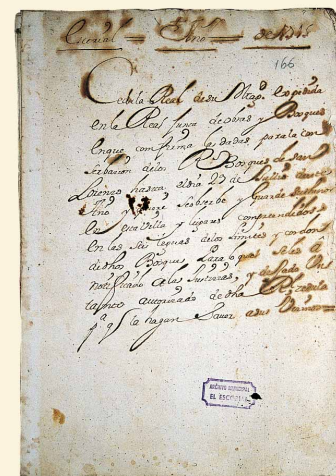 Escorial = Año = de 1815
166
Cedula Real de su Magd. expedida
en la Real Junta de obras y Bosques
en que confirma las dadas para la con
serbacion de los Rs. Bosques de San
Lorenzo hasta el dia 29 de Julio de este
Año y se observe y guarde
en esta Villa y lugares comprendidos
en las seis leguas de los limites y cordon
de dhos Bosques, para lo que se les à
notificado a las Justizias, y dejado Un
tanto autorizado de dha Rl. Zedula
pa. qe. la hagan saver a sus Vezinos =
ARCHIVO MUNICIPAL
EL ESCORIAL